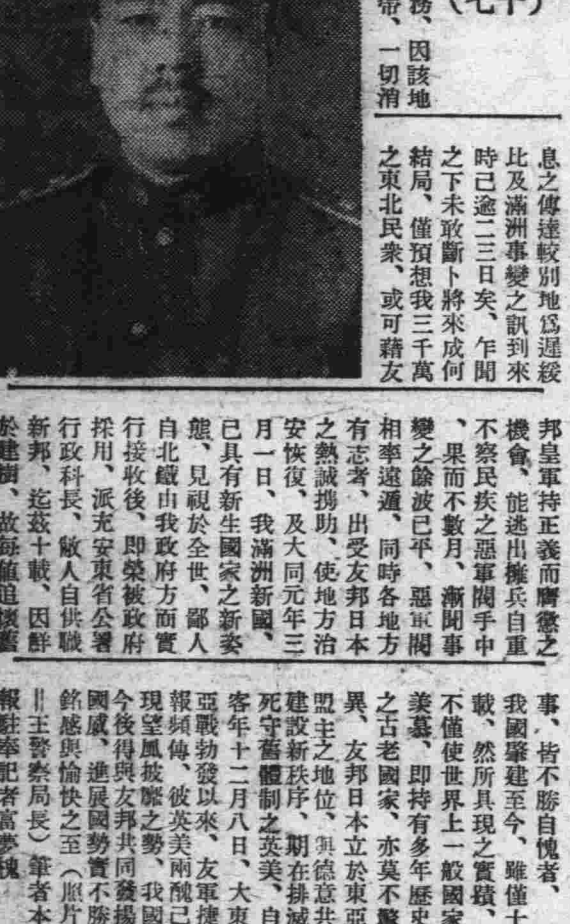 （七十）
務、因該地
帶、一切消
息之傳達較別地爲遲緩
比及滿洲事變之訊到來
時已逾二三日矣、乍聞
之下未敢斷卜將來成何
結局、僅預想我三千萬
之東北民衆、或可藉友
邦皇軍持正義而膺懲之
機會、能逃出擁兵自重
不察民疾之惡軍閥手中
、果而不數月、漸聞事
變之餘波已平、惡軍閥
相率遠遁、同時各地方
有志者、出受友邦日本
之熱誠携助、使地方治
安恢復、及大同元年三
月一日、我滿洲新國、
已具有新生國家之新姿
態、見視於全世、鄙人
自北鐵由我政府方面實
行接收後、即榮被政府
採用、派充安東省公署
行政科長、敝人自供職
新邦、迄玆十載、因鮮
於建樹、故每値追懷舊
事、皆不勝自愧者、
我國肇建至今、雖僅十
載、然所具現之實蹟、
不僅使世界上一般國家
羨慕、即持有多年歷史
之古老國家、亦莫不驚
異、友邦日本立於東亞
盟主之地位、與德意共
建設新秩序、期在排滅
死守舊體制之英美、自
客年十二月八日、大東
亞戰勃發以來、友軍捷
報頻傳、彼英美兩醜已
現望風披靡之勢、我國
今後得與友邦共同發揚
國威、進展國勢實不勝
銘感與愉快之至（照片
＝王警察局長）筆者本
報駐奉記者富夢槐